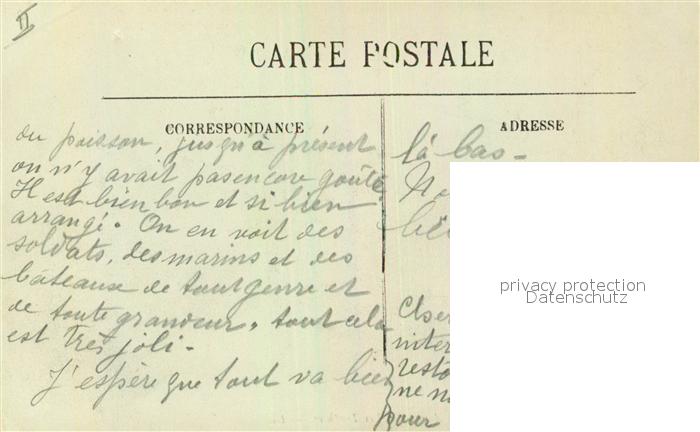 II
CARTE POSTALE
CORRESPONDANCE
ADRESSE
du poisson, jusqu'à présent
on n'y avait pas encore goûté
Il est bien bon et si bien
arrangé. On en voit des
soldats, des marins et des
bâteause de tout genre et
de toute grandeur, tout cela
est très joli.
J'espère que tout va bien
là bas -
pour
privacy protection
Datenschutz